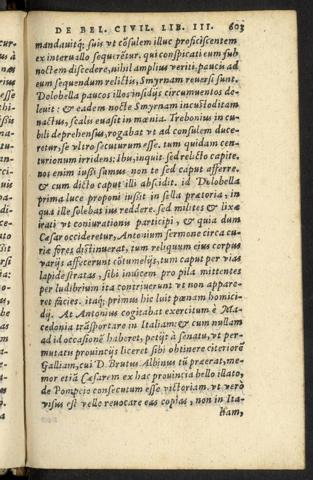 DE BEL. CIVIL. LIB. III. 603
mandauitq́; suis vt cõsulem illuc proficiscentem
ex interuallo sequerẽtur. qui conspicati eum sub
noctem discedere, nihil amplius veriti, paucis ad
eum sequendum relictis, Smyrnam reuersi sunt.
Dolobella paucos illos insidijs circumuentos de-
leuit: & eadem nocte Smyrnam incustoditam
nactus, scalis euasit in mœnia. Trebonius in cu-
bili deprehensus, rogabat vt ad consulem duce-
retur, se vltro secuturum esse. tum quidam cen-
turionum irridens: Ibu, inquit sed relicto capite,
nos enim iussi sumus non te sed caput afferre.
& cum dicto caput illi abscidit. id Dolobella
prima luce proponi iussit in sella prætoria, in
qua ille solebat ius reddere. sed milites & lixæ
irati vt coniurationis participi, & quia dum
Cæsar occideretur, Antonium sermone circa cu-
riæ fores distinuerat, tum reliquum eius corpus
varijs affecerunt cõtumelijs, tum caput per vias
lapide stratas, sibi inuicem pro pila mittentes
per ludibrium ita contriuerunt vt non appare-
ret facies. itaq́; primus hic luit pœnam homici-
dij. At Antonius cogitabat exercitum è Ma-
cedonia trãsportare in Italiam: & cum nullam
ad id occasionẽ haberet, petijt à senatu, vt per-
mutatis prouincijs liceret sibi obtinere citeriorẽ
Galliam, cui D. Brutus Albinus tũ præerat, me-
mor etiã Cæsarem ex hac prouincia bello illato,
de Pompeio consecutum esse victoriam. vt verò
visus est velle reuocare eas copias, non in Ita-
liam,